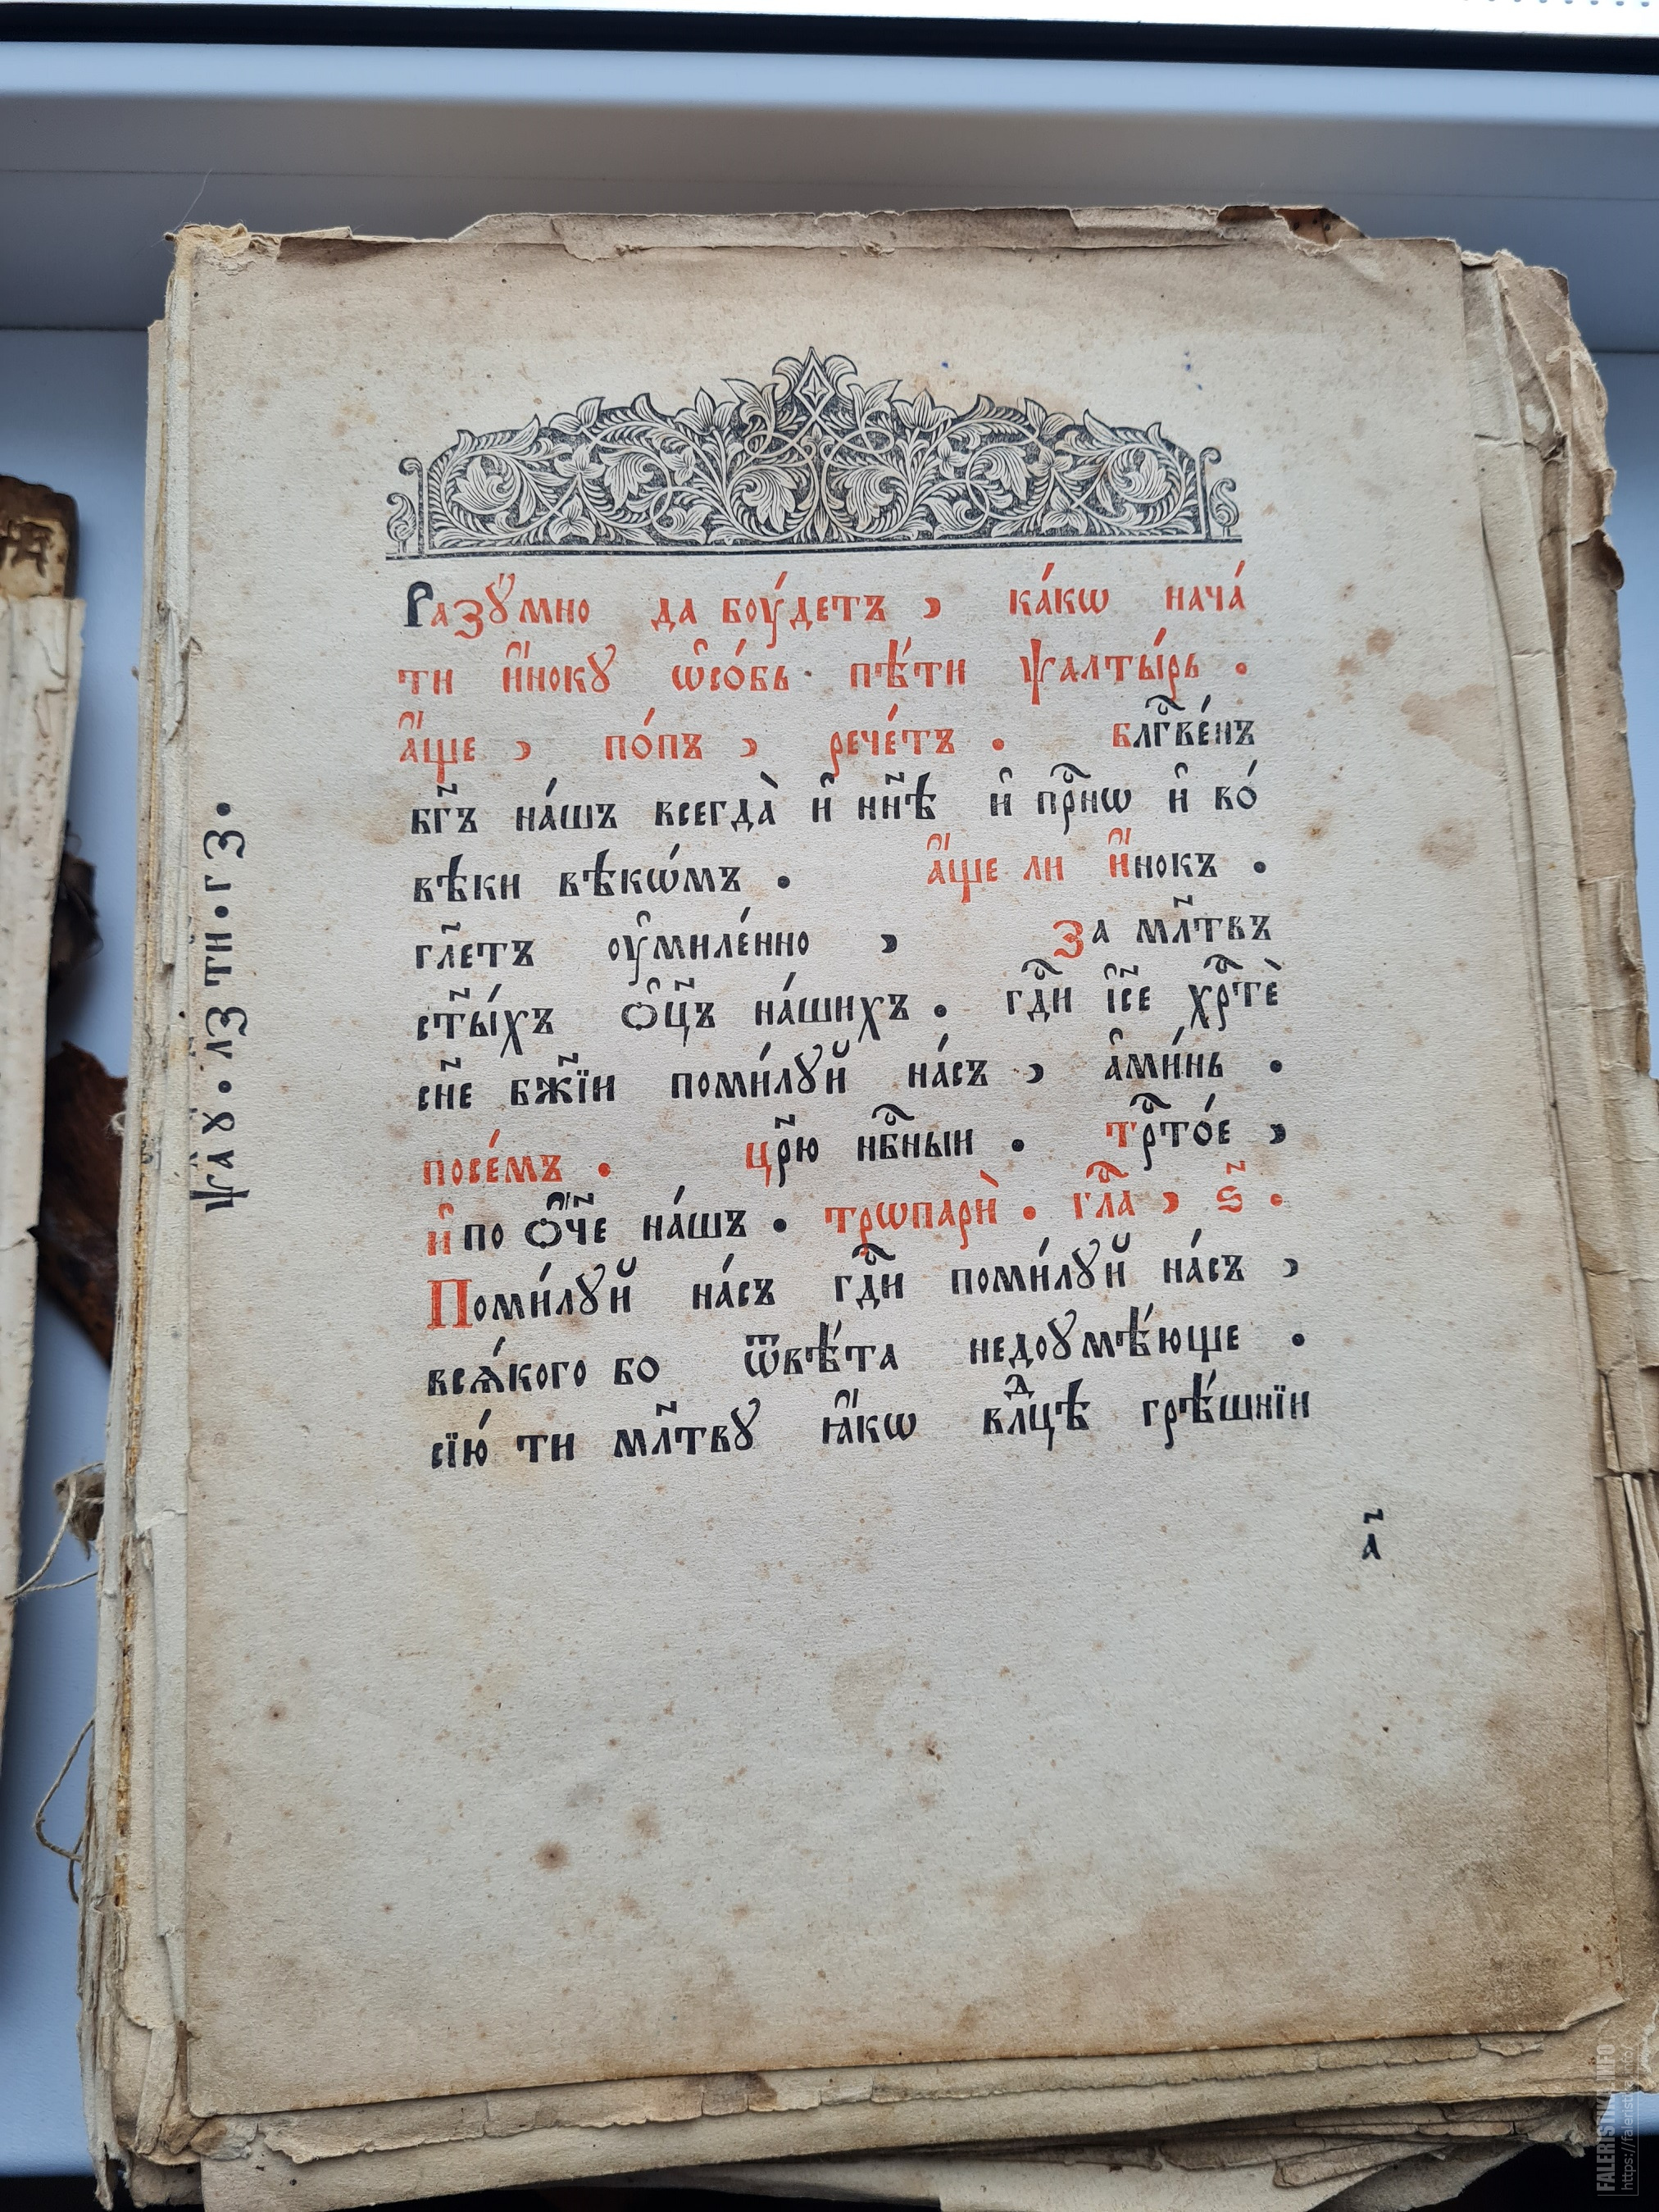 Разꙋ́мно да боу́детъ , ка́кѡ нача́
ти и҆́нокꙋ ѡ҆со́бь · пѣ́ти ѱалты́рь .
а҆́ще , по́пъ , рече́тъ . блгⷭ҇ве́нъ
бг҃ъ на́шъ всегда̀ и҆ нн҃ѣ и҆ прⷭ҇нѡ и҆ во́
вѣки вѣкѡ́мъ . а҆́ще ли и҆́нокъ .
гл҃етъ оу҆миле́нно , За мл҃твъ
ст҃ы́хъ ѻ҆ц҃ъ на́шихъ . гдⷭ҇и і҆с҃е хрⷭ҇тѐ
сн҃е бж҃їи поми́лꙋй на́съ , а҆ми́нь .
посе́мъ . црⷭ҇ю нбⷭ҇ныи . трⷭ҇то́е ,
и҆ по ѻ҆́ч҃е на́шъ . трѡпарѝ . глⷭ҇а , ѕ҃ .
Поми́лꙋй на́съ гдⷭ҇и поми́лꙋй на́съ ,
всѧ́кого бо ѿвѣ́та недоумѣ́юще .
сїю́ ти мл҃твꙋ ꙗ҆́кѡ влⷣцѣ грѣ́шнїи
а҃
ѱаꙋ . лз тн . гз .
FALERISTIKA.INFO
https://faleristika.info/